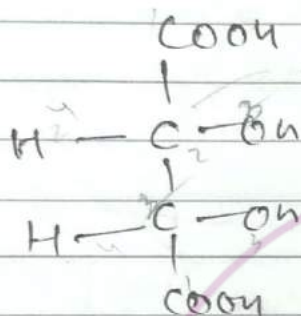 COOH
H — C — OH
2
H — C — OH
COOH